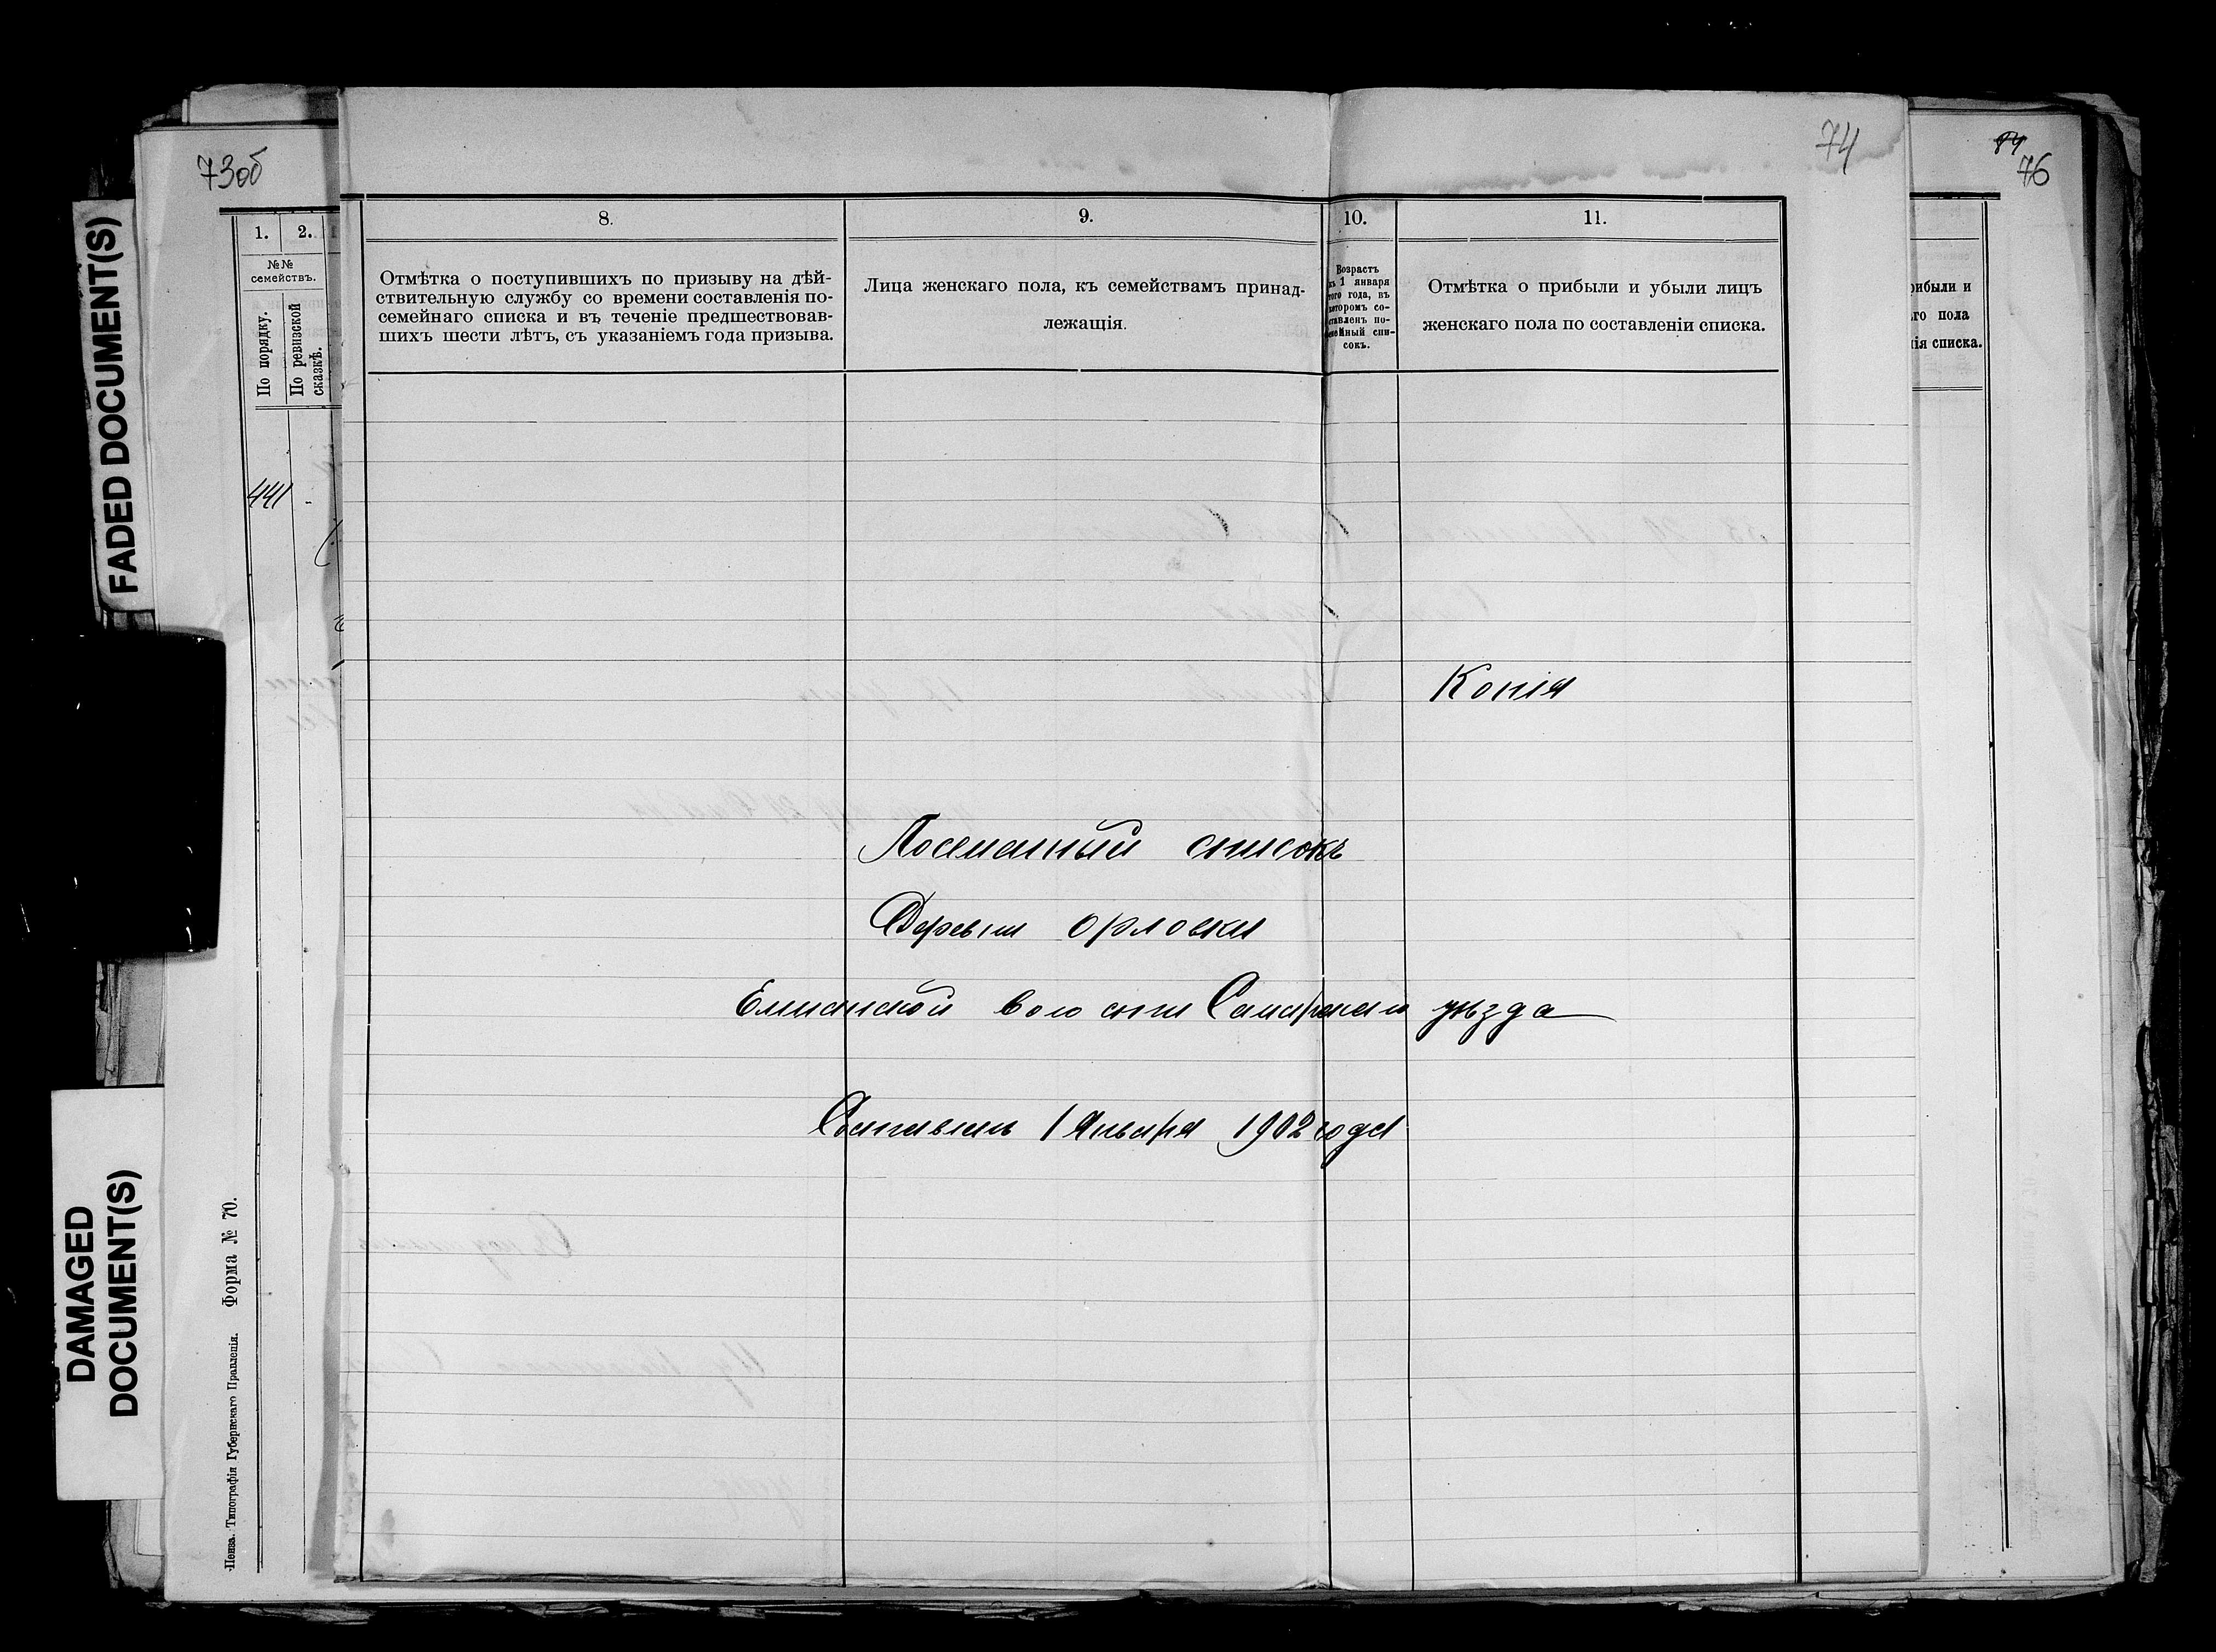 FADED DOCUMENT(S)
DAMAGED
DOCUMENT(S)
73об
74
84
76
1.
2.
№№
семействъ.
По порядку.
По ревизской
сказкѣ.
441 -
Пенза. Типографія Губернскаго Правленія. Форма № 70.
8.
Отмѣтка о поступившихъ по призыву на дѣй-
ствительную службу со времени составленія по-
семейнаго списка и въ теченіе предшествовав-
шихъ шести лѣтъ, съ указаніемъ года призыва.
9.
Лица женскаго пола, къ семействамъ принад-
лежащія.
10.
Возрастъ
къ 1 января
того года, въ
которомъ со-
ставленъ по-
семейный спи-
сокъ.
11.
Отмѣтка о прибыли и убыли лицъ
женскаго пола по составленіи списка.
рибыли и
го пола
ія списка.
Копія
Посемейный списокъ
Деревни Орловки
волости Самарскаго уѣзда
Составленъ 1 Января 1902 года